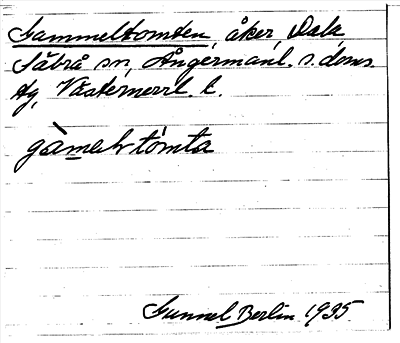 Gammeltomten, åker, Dala,
Säbrå sn, Ångermanl. s. doms.
tg, Västernorrl. l.
gàmeltòmta
Gunnel Berlin 1935.